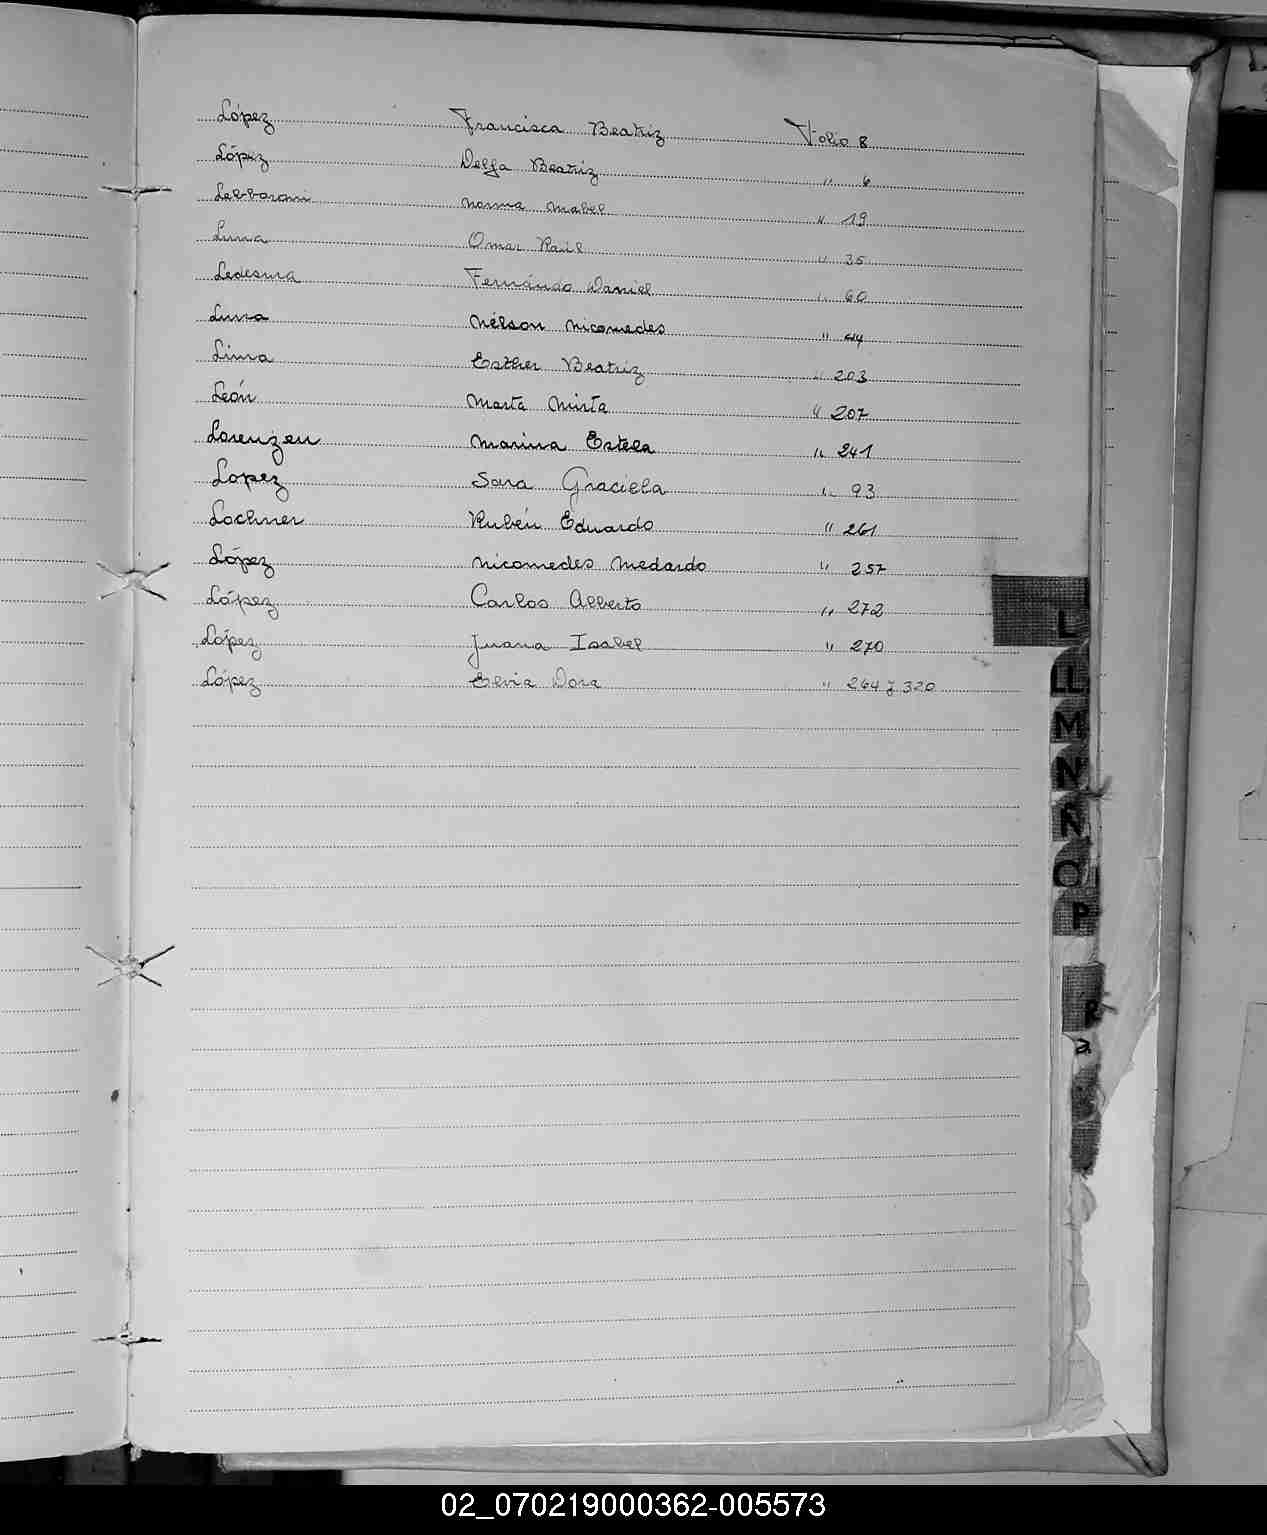 López Francisca Beatriz Folio 8
López Delfa Beatriz " 6
Lebboroni Norma Mabel " 19
Luna Omar Raúl " 35
Ledesma Fernándo Daniel " 60
Luna Nélson Nicomedes "
Lima Esther Beatriz " 203
León Marta Mirta " 207
Lorenzen Marina Estela " 241
Lopez Sara Graciela " 93
Lochner Rubén Eduardo " 261
López Nicomedes Medardo " 257
López Carlos Alberto " 272
López Juana Isabel " 270
López Elvia Dora " 264 y 320
L
LL
M
N
Ñ
O
P
R
02_070219000362-005573